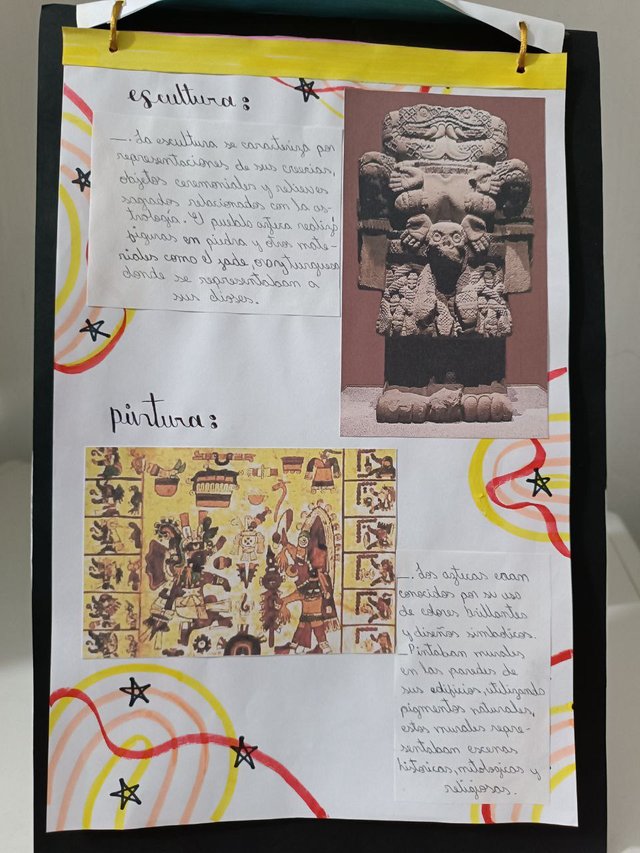 escultura:
_. La escultura se caracteriza por
representaciones de sus creencias,
objetos ceremoniales y relieves
sagados relacionados con la as-
trología. El pueblo azteca realizó
figuras en piedra y otros mate-
riales como el jade, oro y turquesa
donde se representaban a
sus dioses.
pintura:
_. Los aztecas eran
conocidos por su uso
de colores brillantes
y diseños simbólicos.
Pintaban murales
en las paredes de
sus edificios, utilizando
pigmentos naturales,
estos murales repre-
sentaban escenas
históricas, mitologicas y
religiosas.